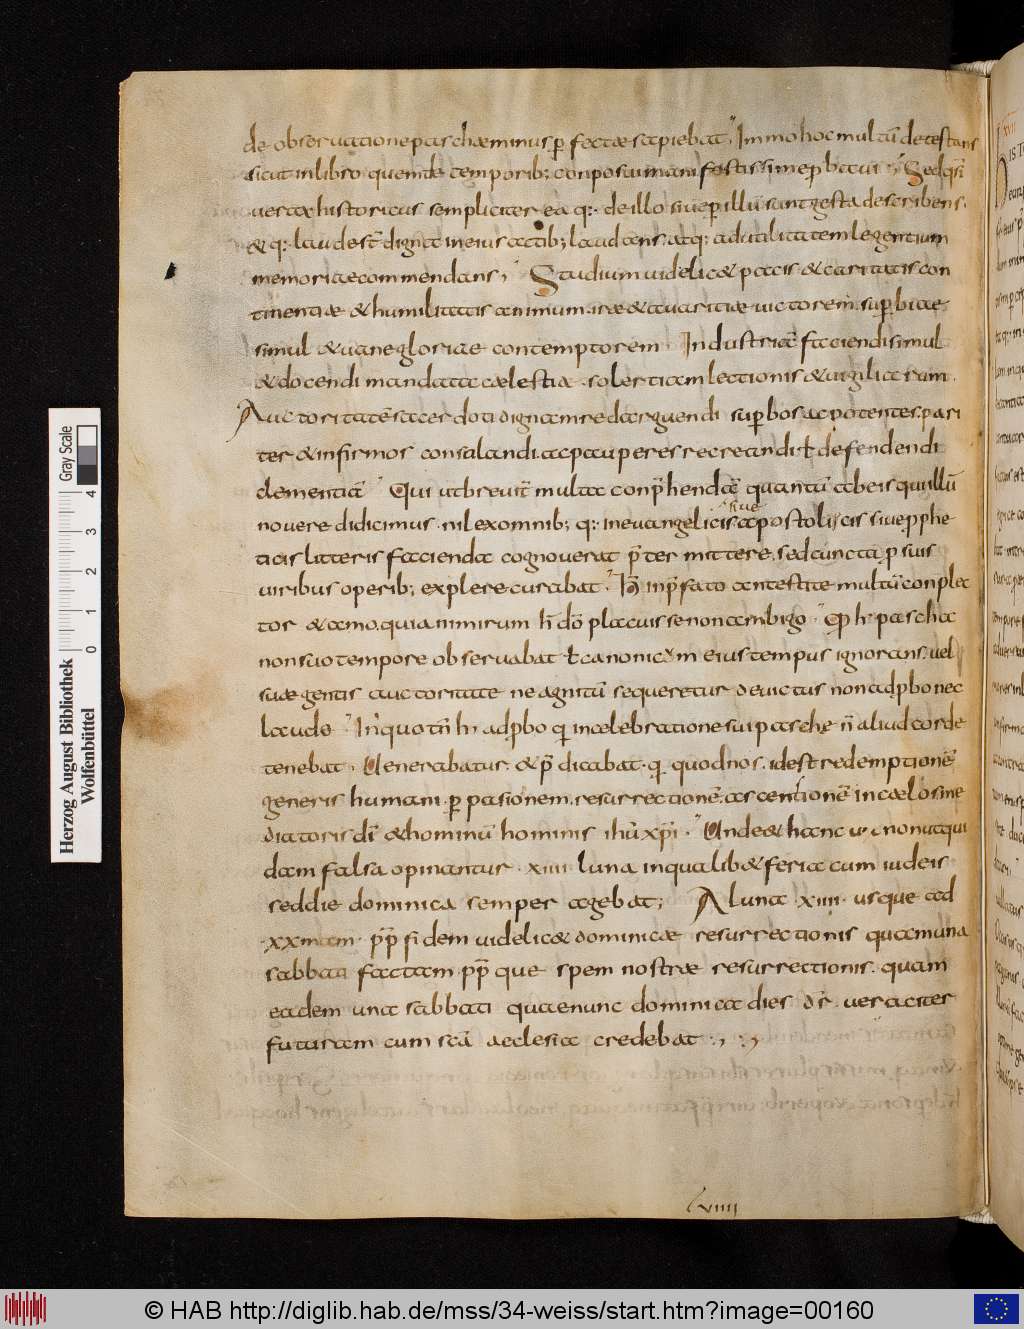 de observatione paschae minus p̲fectae sapiebat; Immo hoc multū detestans
sicut in libro quem de temporib; conposui manifestissime pbavi; Sed qsi
verax historicus sempliciter ea q: de illo sive p̲ illū sunt gesta describens.
& q: laude st̄ digna in eius actib; laudans atq: ad utilitatem legentium
memoriae commendans; Studium videlic& pacis & caritatis con
tinentiae & humilitatis animum. irae & avaritiae victorem. sup̲biae
simul & vane gloriae contemptorem Industriā faciendi simul
& docendi mandata caelestia. solertiam lectionis & vigiliarum.
Auctoritatē sacerdota dignam redarguendi sup̲bos ac potentes. pari
ter & infirmos consalandi. ac pauperes recreandi. ł defendendi
clementiā Qui ut brevit̄ multa conp̄hendā quantū ab eis qui illū
novere didicimus. nil ex omnib; q: in evangelicis
sive
apostolicis sive p̲phe
ticis litteris facienda cognoverat p̄ter mittere. sed cuncta p̲ suis
viribus operib; explere curabat; H̄ in p̄fato antestite multū conplec
tor & amo. quia nimirum h̄ dō placuisse non ambigo; Qp̄ h pascha
non suo tempore observabat ł canonicum eius tempus ignorans. vel
suae gentis auctoritate ne agnitū sequeretur devictus non adpbo nec
laudo In quo tn̄ h adpbo q in celebratione sui pasche n̄ aliud corde
tenebat. Venerabatur. & p̄dicabat. q quod nos. id est redemptionē
generis humani. p̲ pasionem. resurrectionē. ascensionē in caelos me
diatoris dī & hominū hominis ihū xpī. Unde & hanc non ut qui
dam falsa opinantur. xiiii luna in qualib& feria cum iudeis
sed die dominica semper agebat; A luna. xiiii. usque ad
.xxmam. pp̄ fidem videlic& dominicae resurrectionis qua muna
sabbati factam. pp̄ que spem nostrae resurrectionis. quam
eadem una sabbati quae nunc dominica dies dr̄. veraciter
futuram cum scā aeclesia credebat
lviiii
Herzog August Bibliothek
Wolfenbüttel
0 1 2 3 4
Gray Scale
© HAB http://diglib.hab.de/mss/34-weiss/start.htm?image=00160